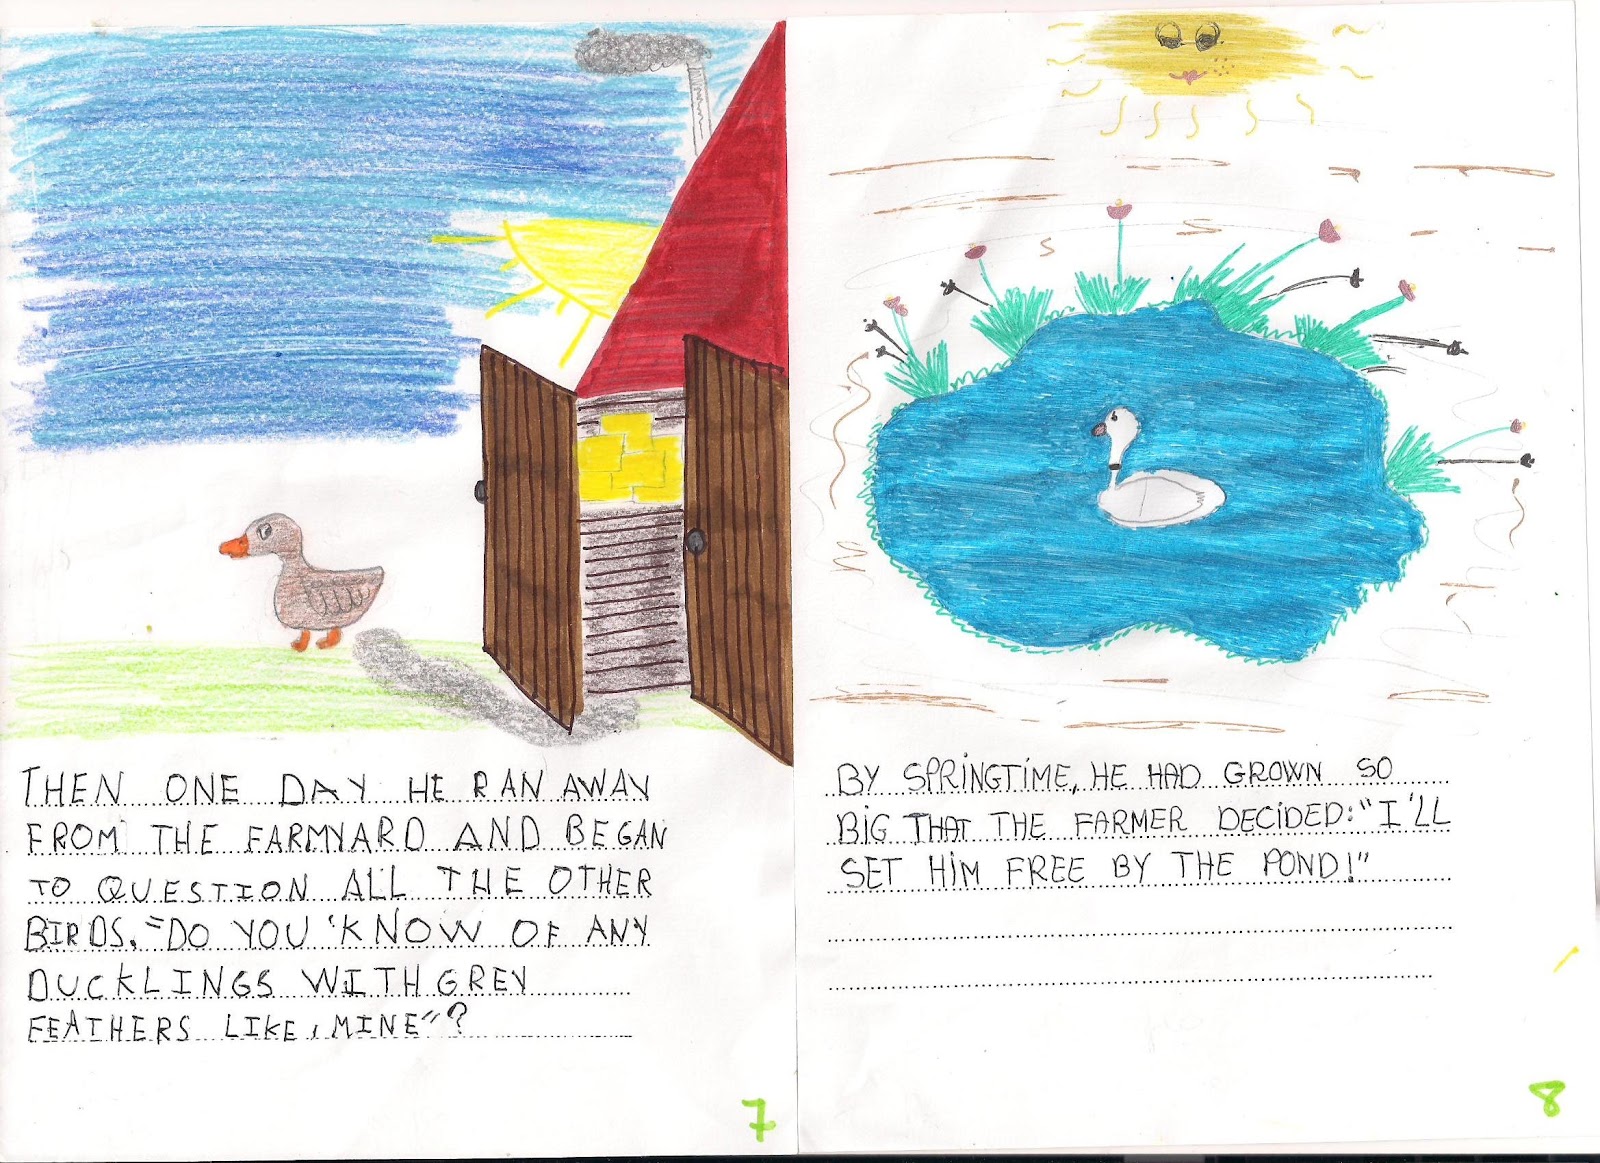 THEN ONE DAY HE RAN AWAY
FROM THE FARMYARD AND BEGAN
TO QUESTION ALL THE OTHER
BIRDS. "DO YOU 'KNOW OF ANY
DUCKLINGS WITH GREY
FEATHERS LIKE, MINE"?
7
BY SPRINGTIME, HE HAD GROWN SO
BIG THAT THE FARMER DECIDED: "I'LL
SET HIM FREE BY THE POND!"
8